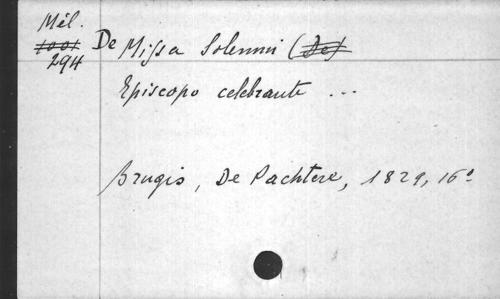 Mél.
1001
294
De Missa Solemni (De)
Episcopo celebrante ...
Brugis, De Pachtere, 1829, 16°